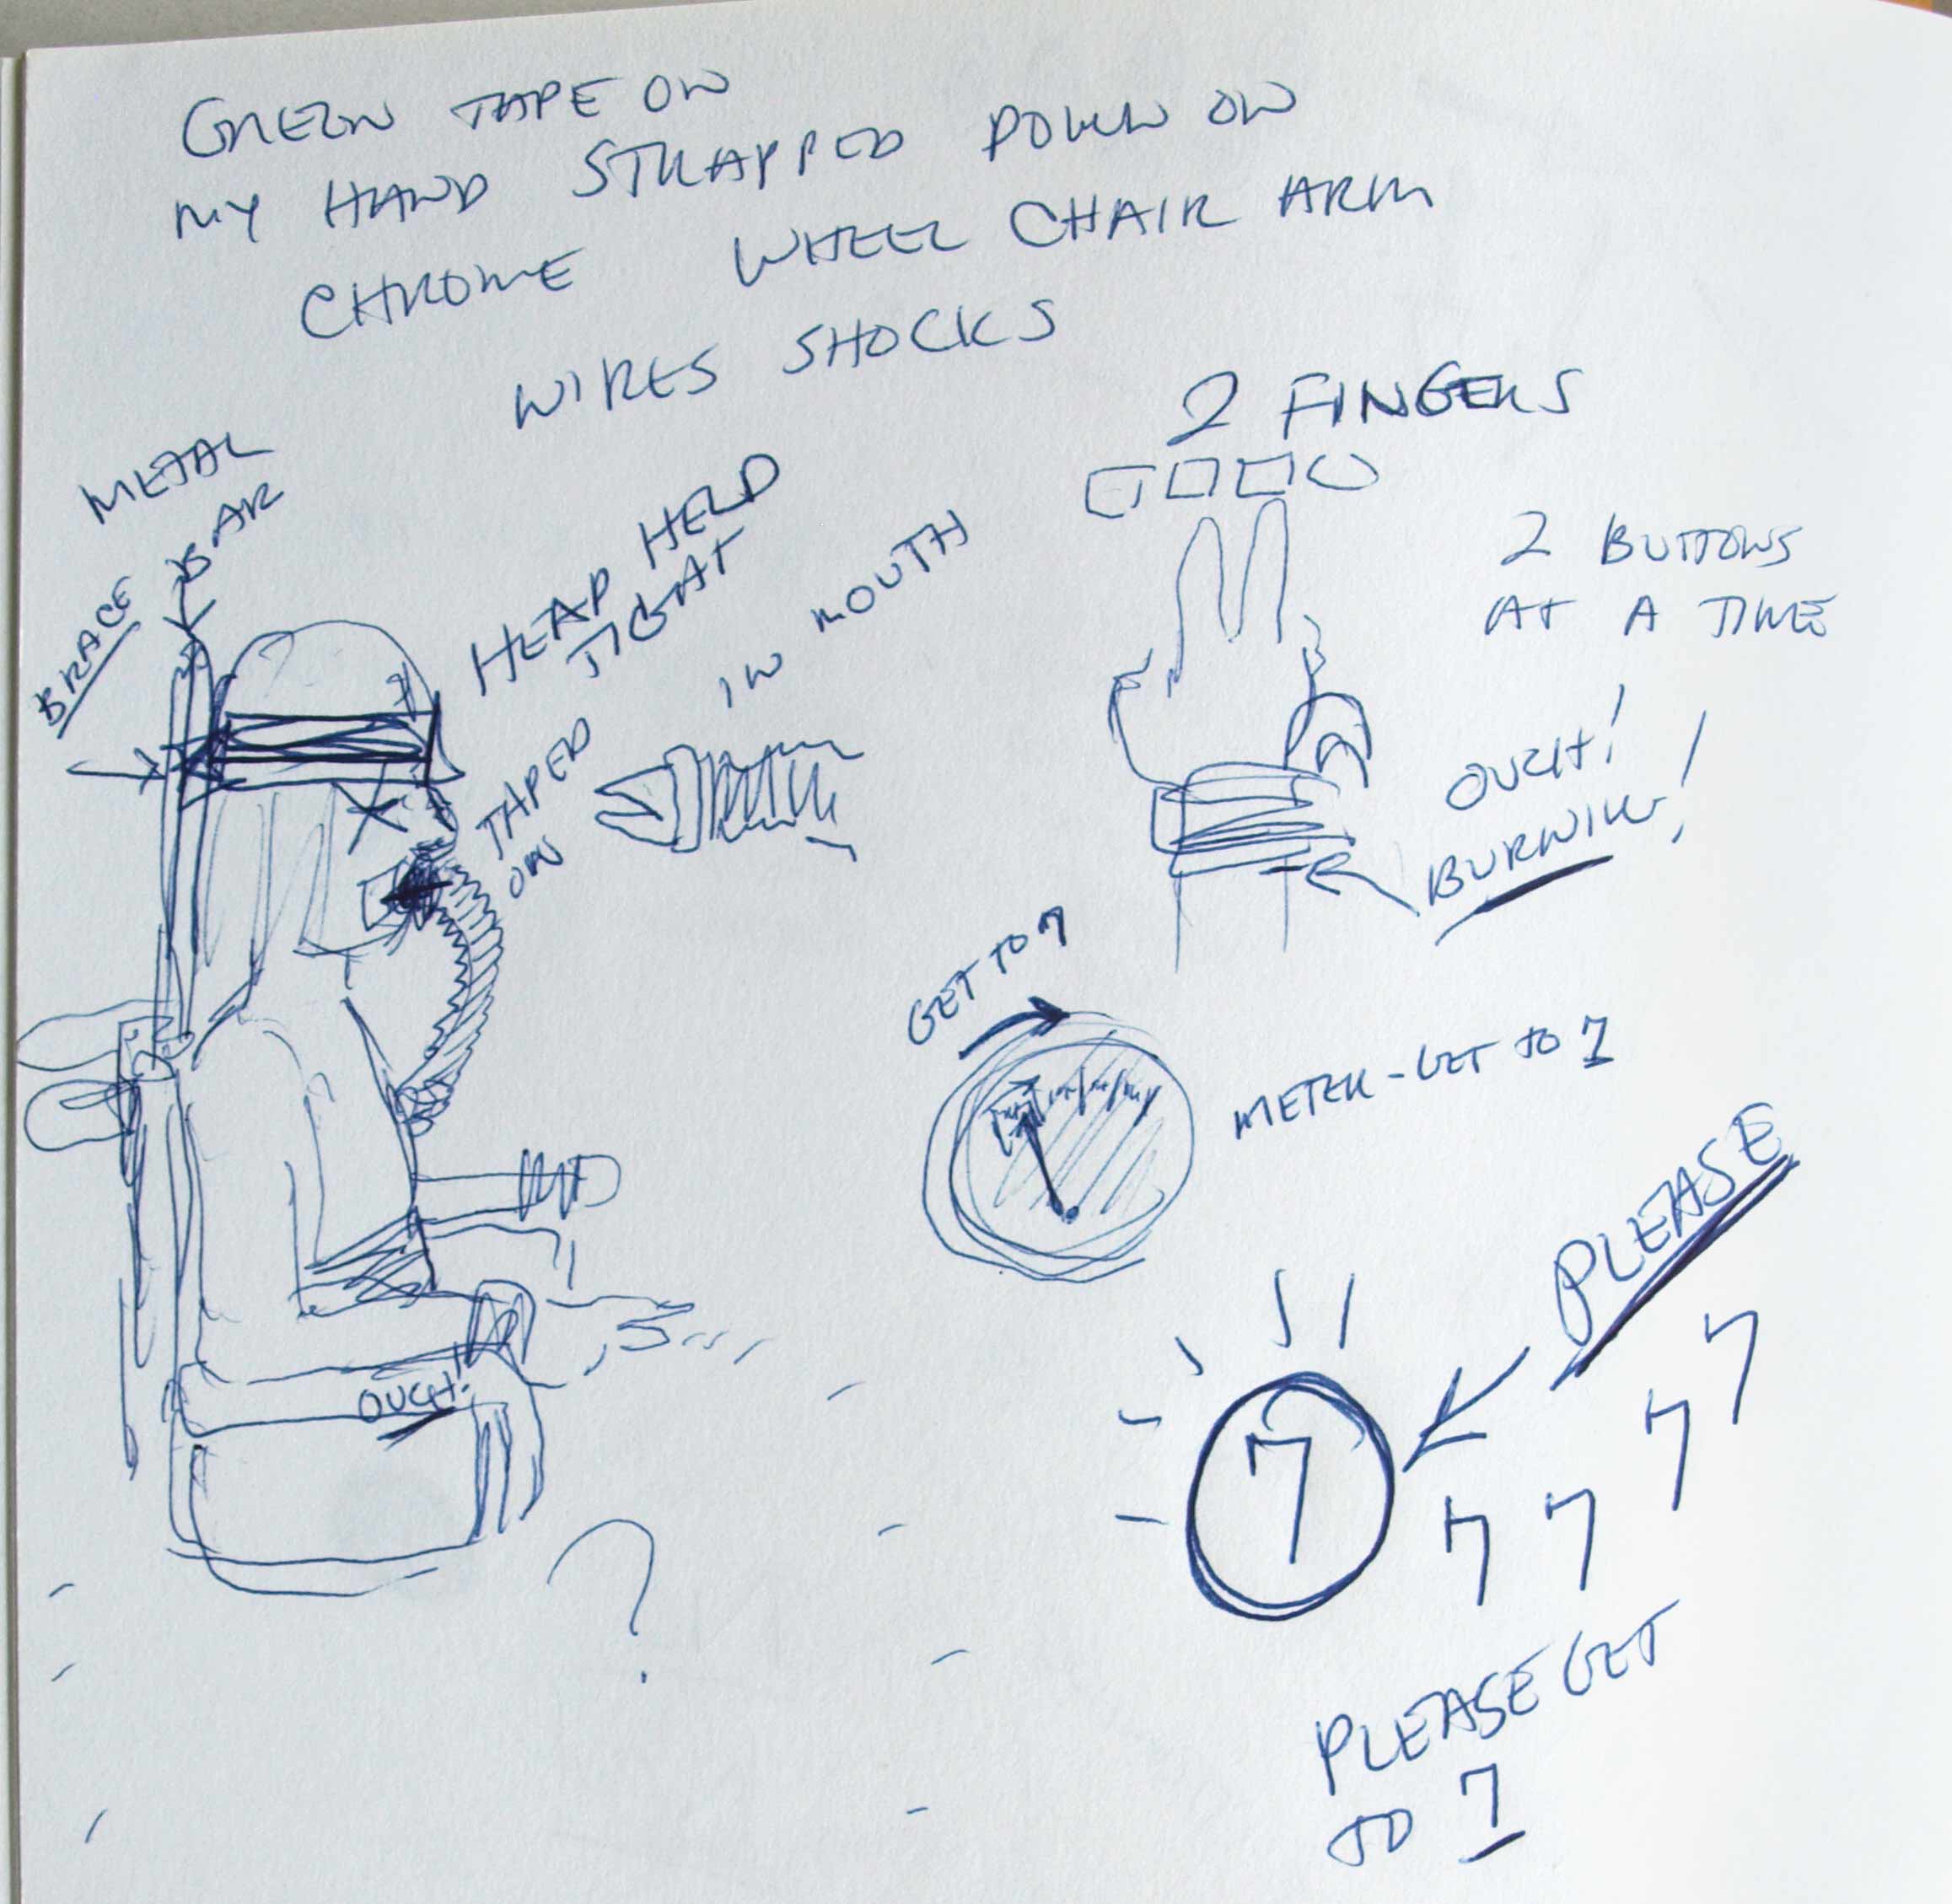 GREEN TAPE ON
MY HAND STRAPPED DOWN ON
CHROME WHEEL CHAIR ARM
WIRES SHOCKS
METAL
BAR
BRACE
HEAD HELD
TIGHT
TAPED
ON
IN MOUTH
2 FINGERS
2 BUTTONS
AT A TIME
OUCH!
BURNING!
GET TO 7
METER - GET TO 7
PLEASE
7
7 7 7 7
OUCH!
?
PLEASE GET
TO 7